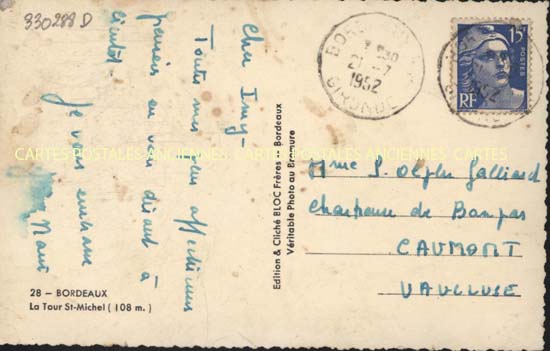 330288 D
Toutes mes plus affectueuses
pensées en vous disant à
bientôt.
Je vous embrasse
28 – BORDEAUX
La Tour St-Michel ( 108 m. )
Edition & Cliché BLOC Frères - Bordeaux
Véritable Photo au Bromure
CARTES POSTALES ANCIENNES CARTES POSTALES ANCIENNES CARTES
BORDEAUX
21 - 7
1952
GIRONDE
15F
POSTES
RF
1952
Mme
Galliard
Chartreuse de Bompas
CAUMONT
VAUCLUSE